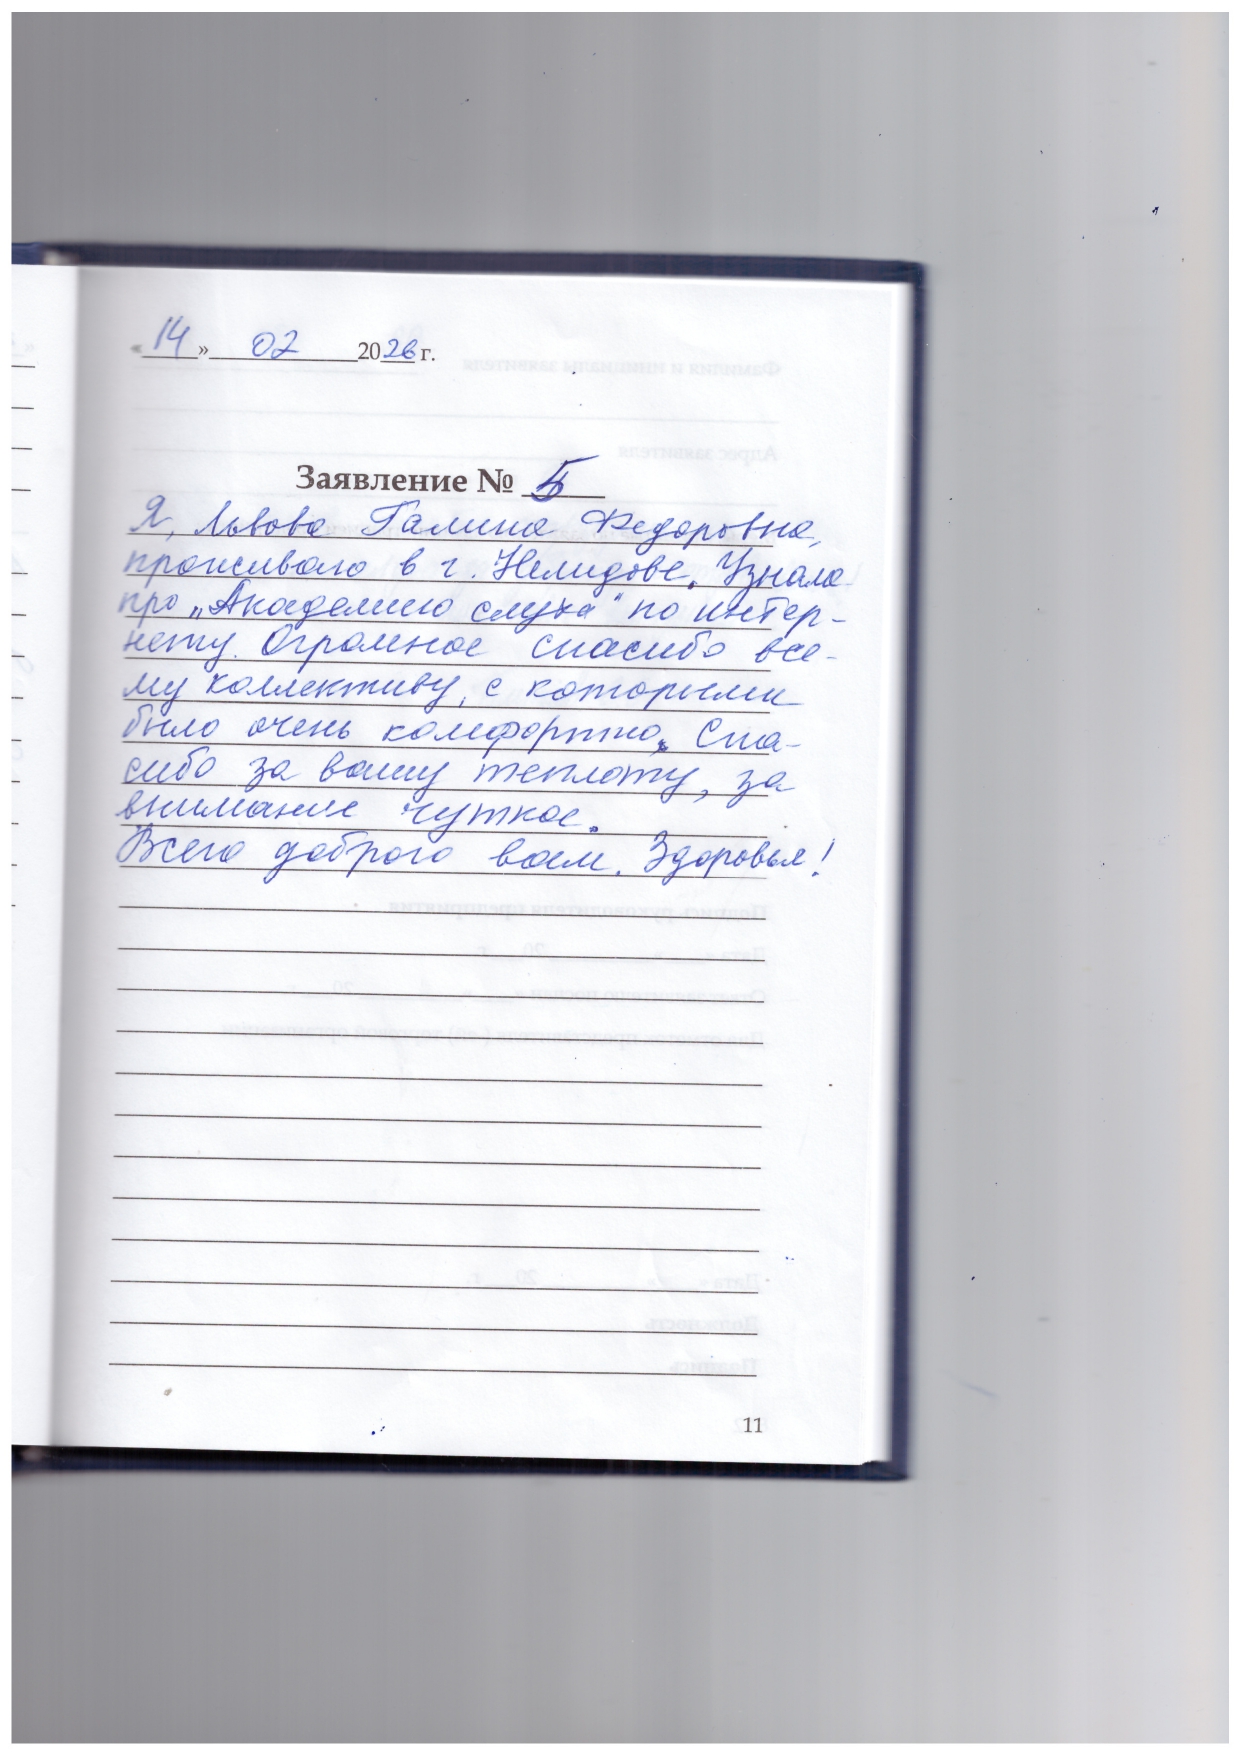 «14» 02 2026 г.
Заявление № 5
Я, Львова Галина Федоровна,
проживаю в г. Нелидове. Узнала
про „Академию слуха" по интер-
нету. Огромное спасибо все-
му коллективу, с которыми
было очень комфортно. Спа-
сибо за вашу теплоту, за
внимание чуткое.
Всего доброго вам. Здоровья!
11